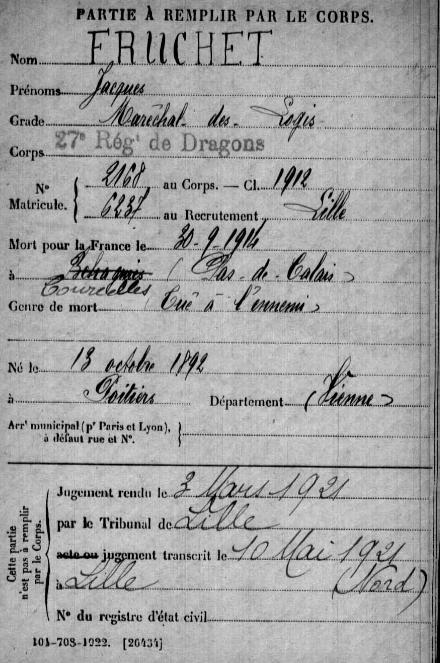 PARTIE À REMPLIR PAR LE CORPS.
Nom FRUCHET
Prénoms Jacques
Grade Maréchal-des-Logis
Corps 27e Régt de Dragons
N° Matricule. { 2168 au Corps. — Cl. 1912
6237 au Recrutement Lille
Mort pour la France le 30-9-1914
à (Pas-de-Calais)
Courcelles
Genre de mort Tué à l'ennemi
Né le 13 octobre 1892
à Poitiers Département (Vienne)
Arrt municipal (pr Paris et Lyon), à défaut rue et N°. }
Cette partie n'est pas à remplir par le Corps.
Jugement rendu le 3 Mars 1921
par le Tribunal de Lille
acte ou jugement transcrit le 10 Mai 1921
à Lille (Nord)
N° du registre d'état civil
101-708-1922. [26434]